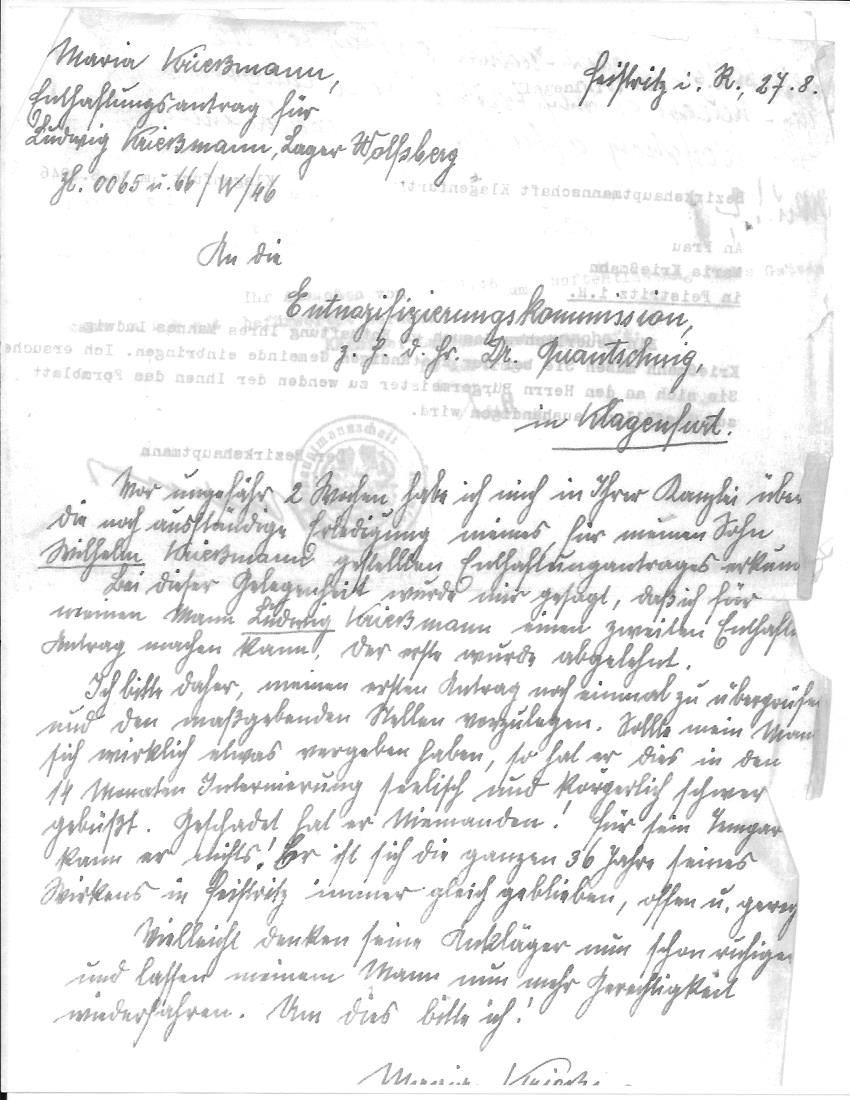 Maria Krießmann,
Feistritz i. R., 27.8.
Enthaftungsantrag für
Ludwig Krießmann, Lager Wolfsberg
Zl. 0065 u. 66/W/46
Bezirkshauptmannschaft Klagenfurt
An Frau
Maria Krießmann
in Feistritz i.R.
An die
Entnazifizierungskommission,
z. H. d. Hr. Dr. Quantschnig,
in Klagenfurt.
Enthaftung Ihres Mannes Ludwig
Gemeinde einbringen. Ich ersuche
Sie sich an den Herrn Bürgermeister zu wenden der Ihnen das Formblatt
aushändigen wird.
Der Bezirkshauptmann
Vor ungefähr 2 Wochen habe ich mich in Ihrer Kanzlei über
die noch ausständige Erledigung meines, für meinen Sohn
Wilhelm Krießmann gestellten Enthaftungantrages erkun
Bei dieser Gelegenheit wurde mir gesagt, daß ich für
meinen Mann Ludwig Krießmann einen zweiten Enthaft
Antrag machen kann, der erste wurde abgelehnt.
Ich bitte daher, meinen ersten Antrag noch einmal zu überprüfe
und den maßgebenden Stellen vorzulegen. Sollte mein Man
sich wirklich etwas vergeben haben, so hat er dies in den
14 Monaten Internierung seelisch und körperlich schwer
gebüßt. Geschadet hat er Niemanden! Für sein Tempar
kann er nichts! Er ist sich die ganzen 36 Jahre seines
Wirkens in Feistritz immer gleich geblieben, offen u. gere
Vielleicht denken seine Ankläger nun schon ruhige
und lassen meinem Mann nun mehr Gerechtigkeit
wiederfahren. Um dies bitte ich!
Maria